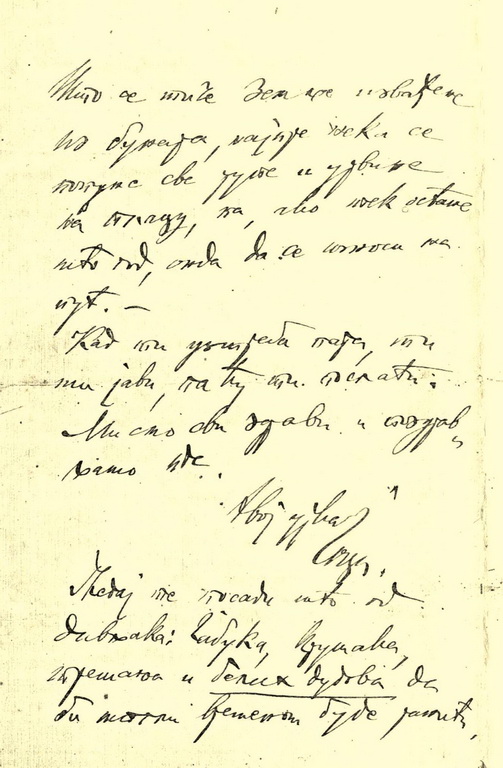 Што се тиче земље извађене
из бунара, најпре нека се
попуне све рупе и удвине
на путу, па, ако нек остане
што год, онда да се износи на
пут. —
Кад ти устреба пара, ти
ми јави, па ћу ти послати.
Ми смо сви здрави и поздрав„
љамо вас.
Твој ујка
Гледај те посади што од
дивљака: јабука, крушака,
трешања и белих дудова да
би могли временом буде